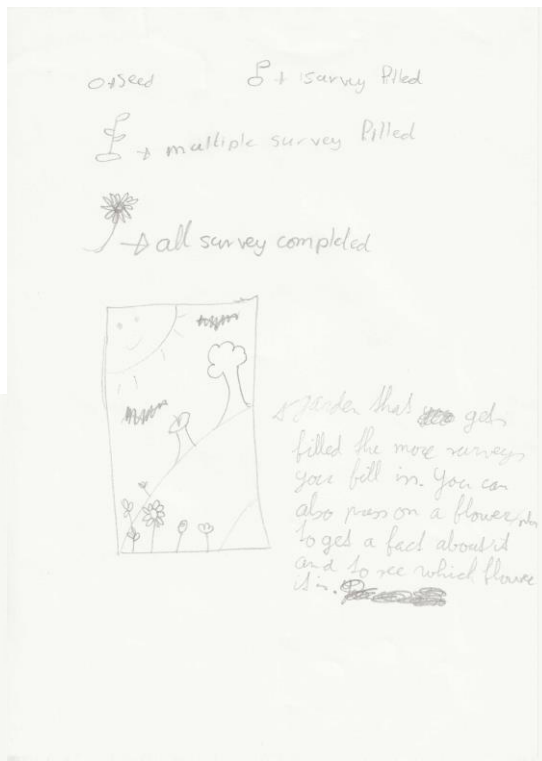 → seed
→ 1 survey filled
→ multiple survey filled
→ all survey completed
garden that gets
filled the more surveys
you fill in. You can
also press on a flower
to get a fact about it
and to see which flower
it is.